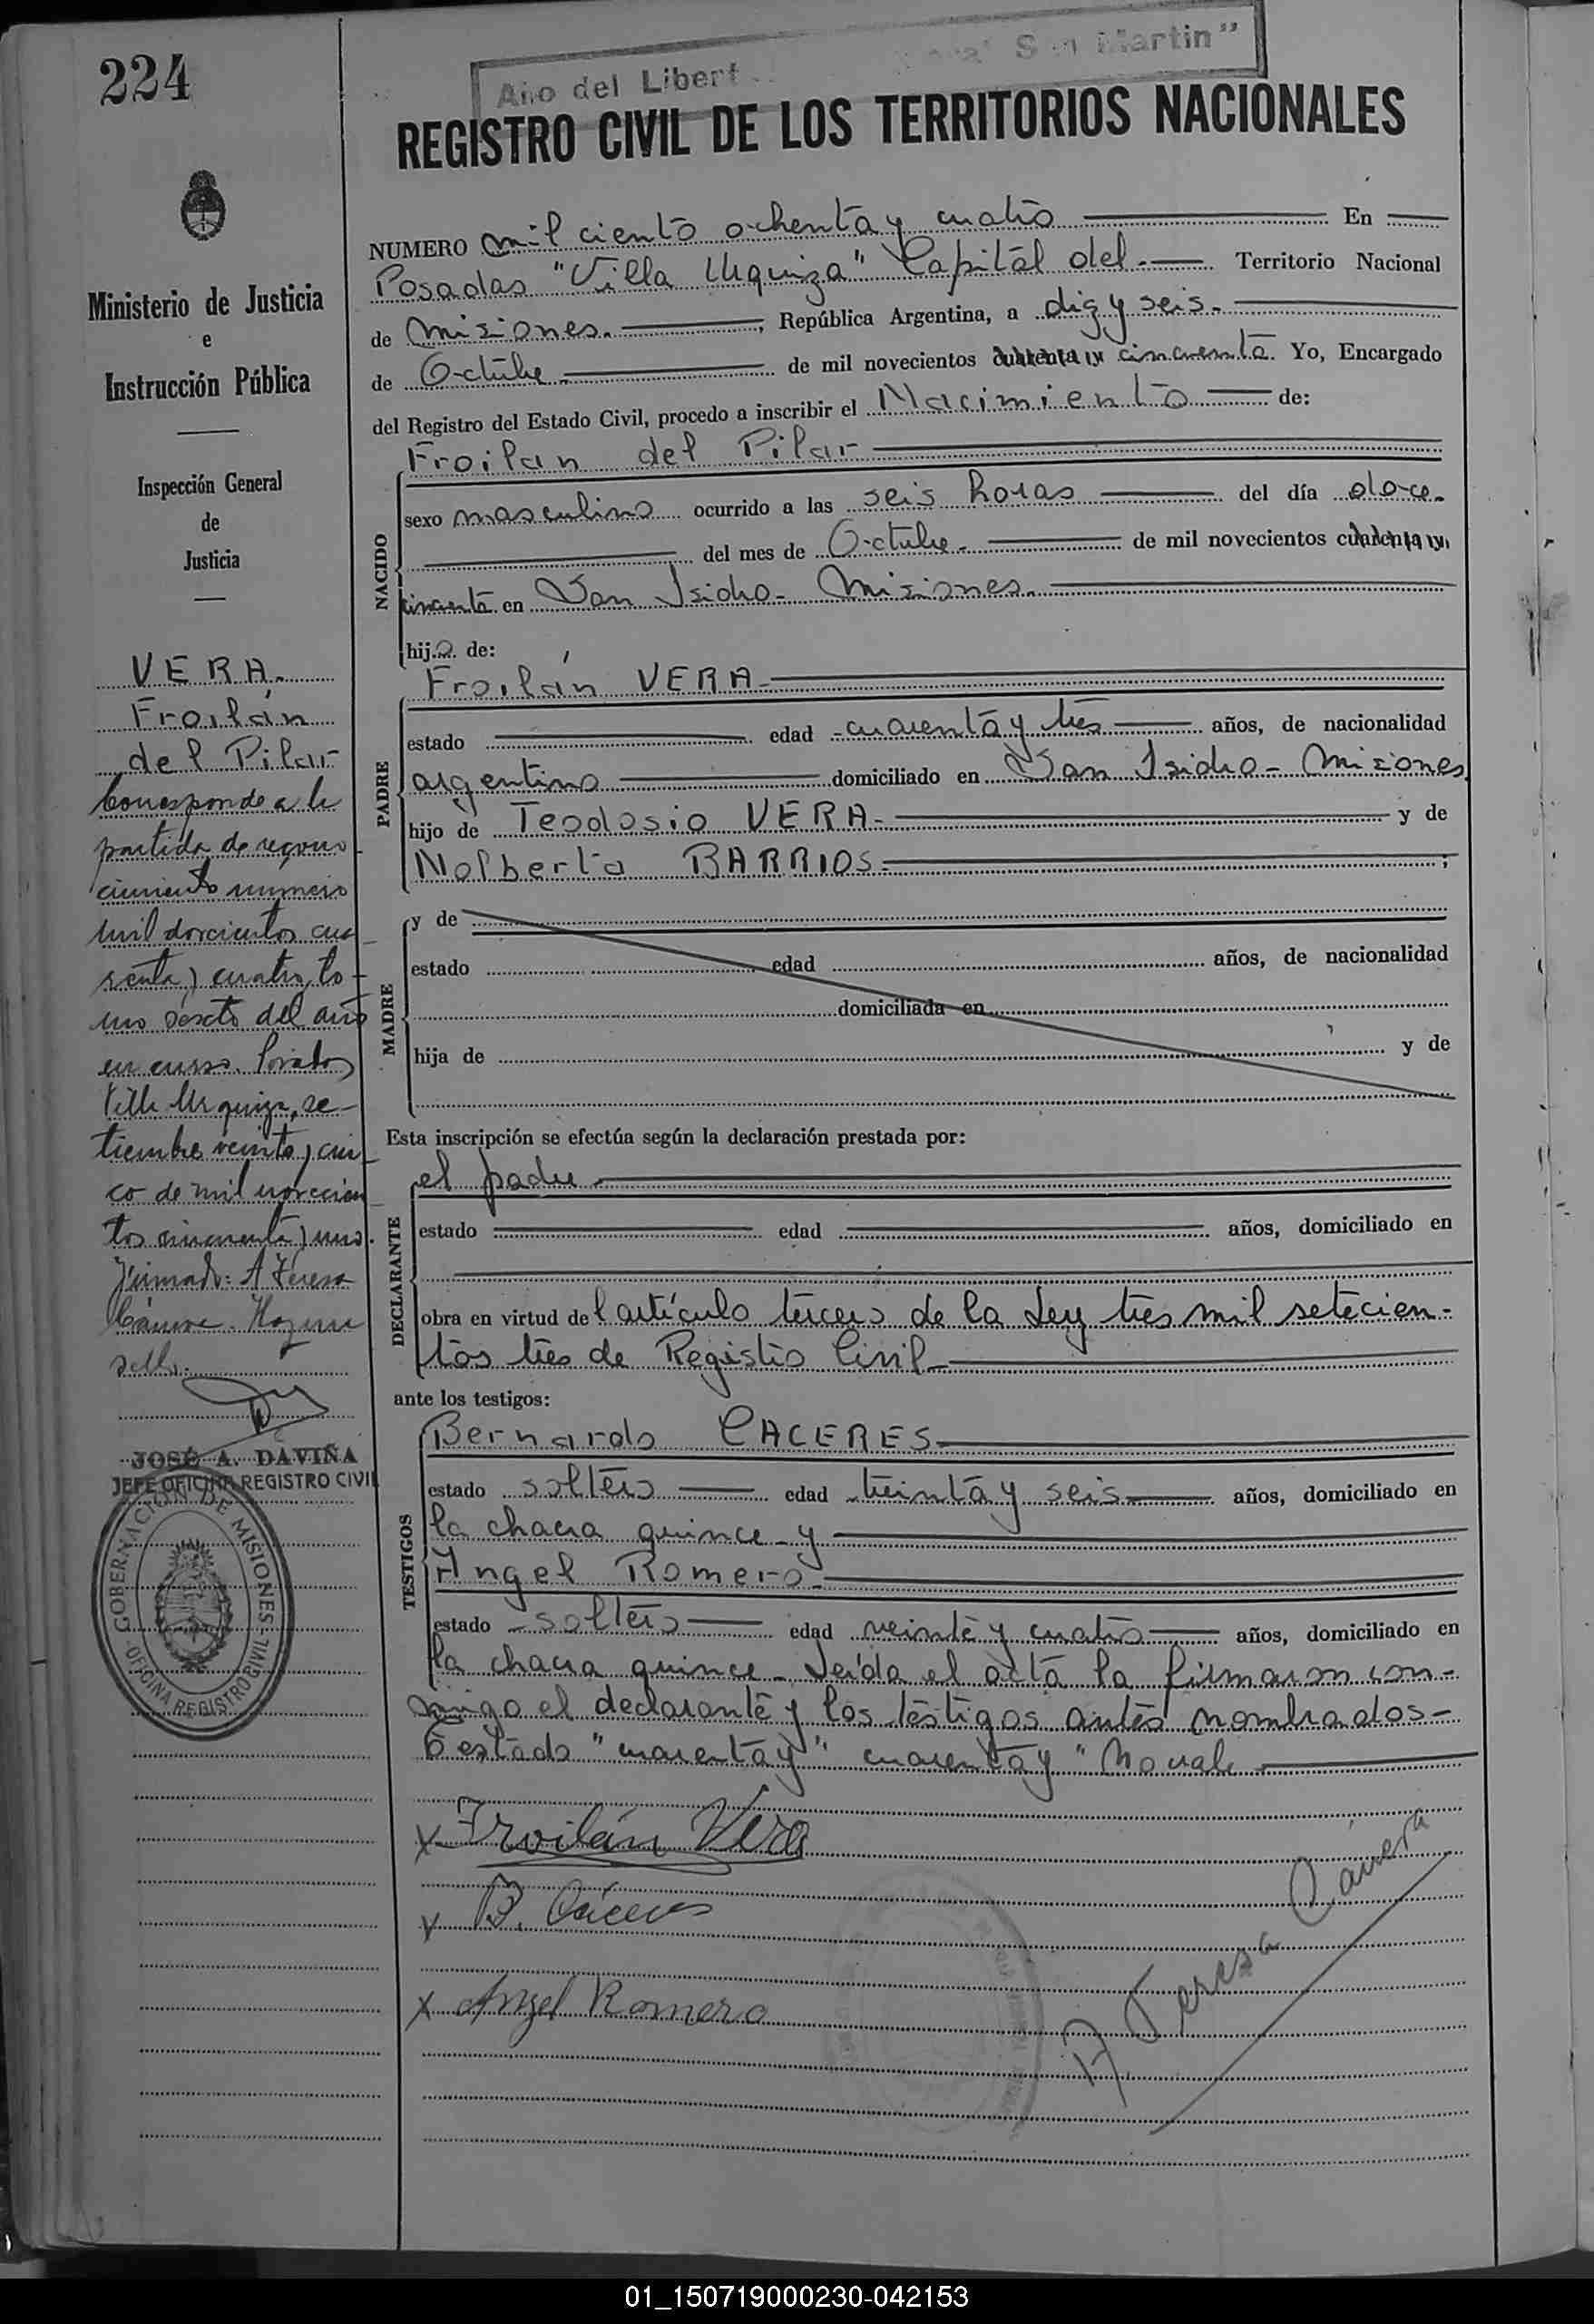 224
Año del Libert
San Martin"
REGISTRO CIVIL DE LOS TERRITORIOS NACIONALES
Ministerio de Justicia
e
Instrucción Pública
Inspección General
de
Justicia
VERA.
Froilán
del Pilar
Corresponde a la
partida de recono
cimiento número
mil doscientos cua
renta y cuatro, to-
mo sexto del año
en curso. Posadas
Villa Urquiza, se-
tiembre veinte y cin-
co de mil novecien
tos cincuenta y uno.
Firmado: A Teresa
Cámera. Hay un
sello.
JOSÉ A. DAVIÑA
JEFE OFICINA REGISTRO CIVIL
GOBERNACION DE MISIONES
OFICINA REGISTRO CIVIL
NUMERO mil ciento ochenta y cuatro En
Posadas "Villa Urquiza" Capital del.- Territorio Nacional
de Misiones.-, República Argentina, a diez y seis.-
de Octubre.- de mil novecientos cuarenta y cincuenta. Yo, Encargado
del Registro del Estado Civil, procedo a inscribir el Nacimiento de:
NACIDO
Froilan del Pilar
sexo masculino ocurrido a las seis horas del día doce.
del mes de Octubre.- de mil novecientos cuarenta y
cincuenta en San Isidro- Misiones.
hijo de:
PADRE
Froilán VERA-
estado edad -cuarenta y tres años, de nacionalidad
argentino domiciliado en San Isidro- Misiones
hijo de Teodosio VERA- y de
Nolberta BARRIOS- ;
MADRE
y de
estado edad años, de nacionalidad
domiciliada en
hija de y de
Esta inscripción se efectúa según la declaración prestada por:
DECLARANTE
el padre
estado edad años, domiciliado en
obra en virtud del artículo tercero de la Ley tres mil setecien-
tos tres de Registro Civil-
ante los testigos:
TESTIGOS
Bernardo CACERES
estado soltero edad treinta y seis años, domiciliado en
la chacra quince y
Angel Romero-
estado -soltero edad veinte y cuatro años, domiciliado en
la chacra quince- Leída el acta la firmaron con-
migo el declarante y los testigos antes nombrados-
Testado "cuarenta y" cuarenta y " No vale
x Froilán Vera
x B. Cáceres
x Angel Romero
A Teresa Cámera
01_150719000230-042153